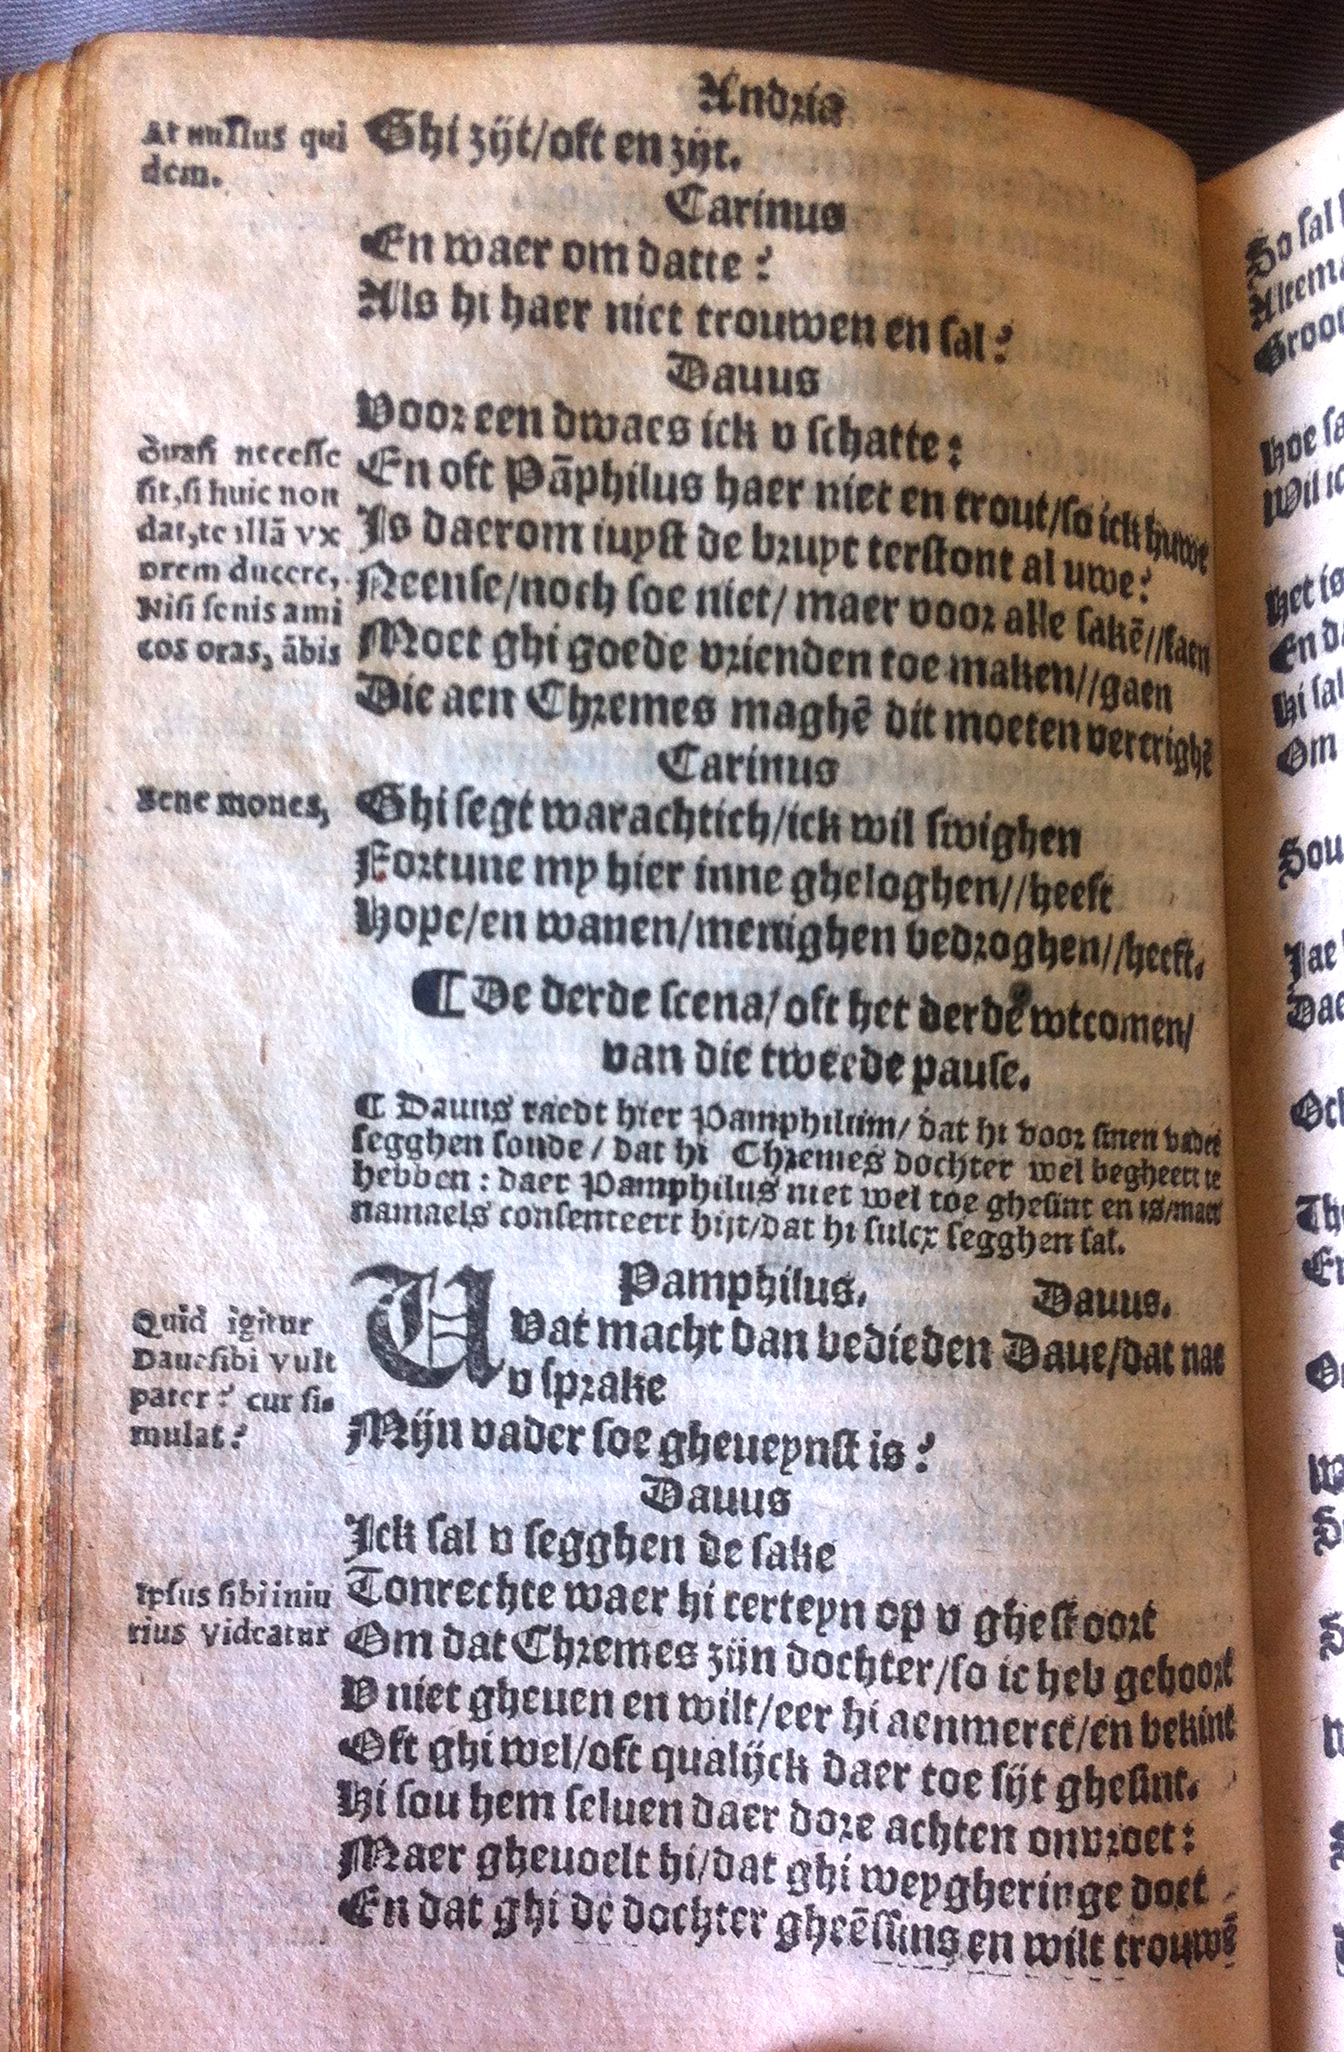 Andria
At nullus qui
dem.
Ghi zijt/oft en zijt.
Carinus
En waer om datte?
Als hi haer niet trouwen en sal?
Dauus
Voor een dwaes ick v schatte:
Quasi necesse
sit, si huic non
dat, te illā vx
orem ducere,
Nisi senis ami
cos oras, ābis
En oft Pāphilus haer niet en trout/so ick huwe
Is daerom iuyst de bruyt terstont al uwe?
Neense/noch soe niet/ maer voor alle sakē//saen
Moet ghi goede vrienden toe maken//gaen
Die aen Chremes maghē dit moeten vercrighē
Carinus
Bene mones,
Ghi segt warachtich/ick wil swighen
Fortune my hier inne gheloghen//heeft
Hope/en wanen/menighen bedroghen//heeft.
¶ De derde scena/ oft het derde wtcomen/
van die tweede pause.
¶ Dauus raedt hier Pamphilum/ dat hi voor sinen vader
segghen soude / dat hi Chremes dochter wel begheert te
hebben : daer Pamphilus niet wel toe ghesint en is/maer
namaels consenteert hijt/dat hi sulcx segghen sal.
Pamphilus. Dauus.
Quid igitur
Daue sibi vult
pater? cur si-
mulat?
VVat macht dan bedieden Daue/dat nae
v sprake
Mijn vader soe gheueynst is?
Dauus
Ick sal v segghen de sake
Ipsus sibi iniu
rius videatur
Tonrechte waer hi certeyn op v ghestoort
Om dat Chremes zijn dochter/so ic heb gehoort
V niet gheuen en wilt/eer hi aenmerct/en bekint
Oft ghi wel/oft qualijck daer toe sijt ghesint.
Hi sou hem seluen daer dore achten onvroet:
Maer gheuoelt hi/dat ghi weygheringe doet
En dat ghi de dochter gheēssins en wilt trouwē